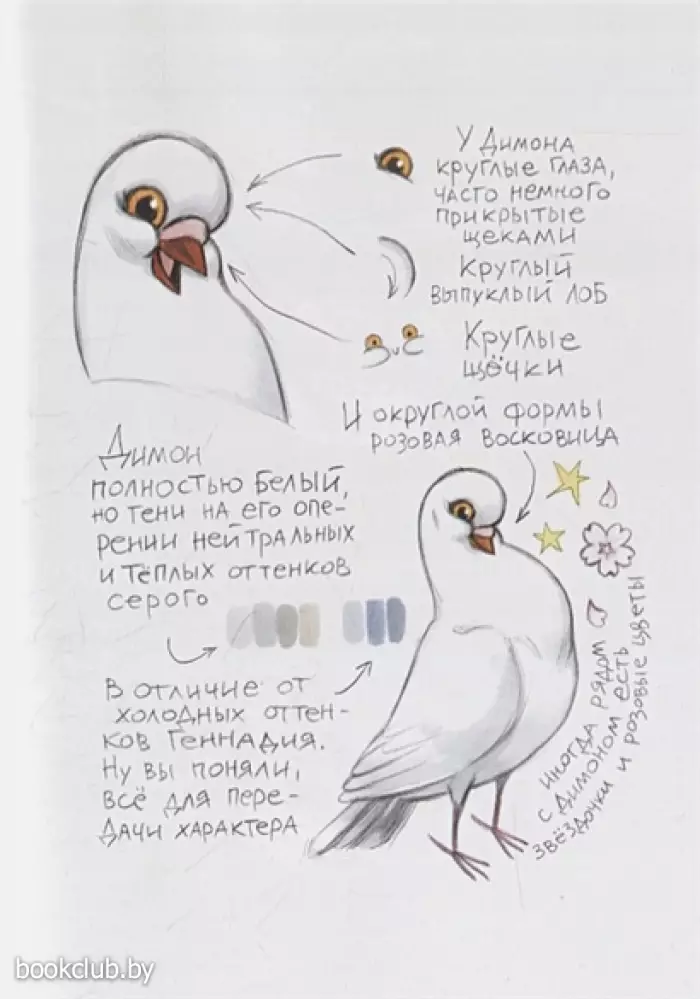 У Димона
круглые глаза,
часто немного
прикрытые
щеками
Круглый
выпуклый лоб
Круглые
щёчки
И округлой формы
розовая восковица
Димон
полностью белый,
но тени на его опе-
рении нейтральных
и тёплых оттенков
серого
В отличие от
холодных оттен-
ков Геннадия.
Ну вы поняли,
всё для пере-
дачи характера
иногда рядом
с Димоном есть
звёздочки и розовые цветы
bookclub.by